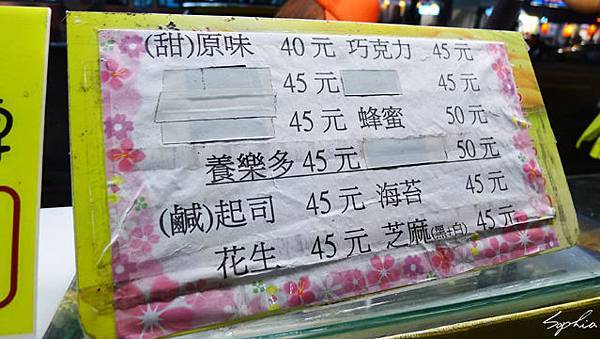 (甜)原味 40元 巧克力 45元
45元 45元
45元 蜂蜜 50元
養樂多 45元 50元
(鹹)起司 45元 海苔 45元
花生 45元 芝麻(黑+白) 45元
Sophia